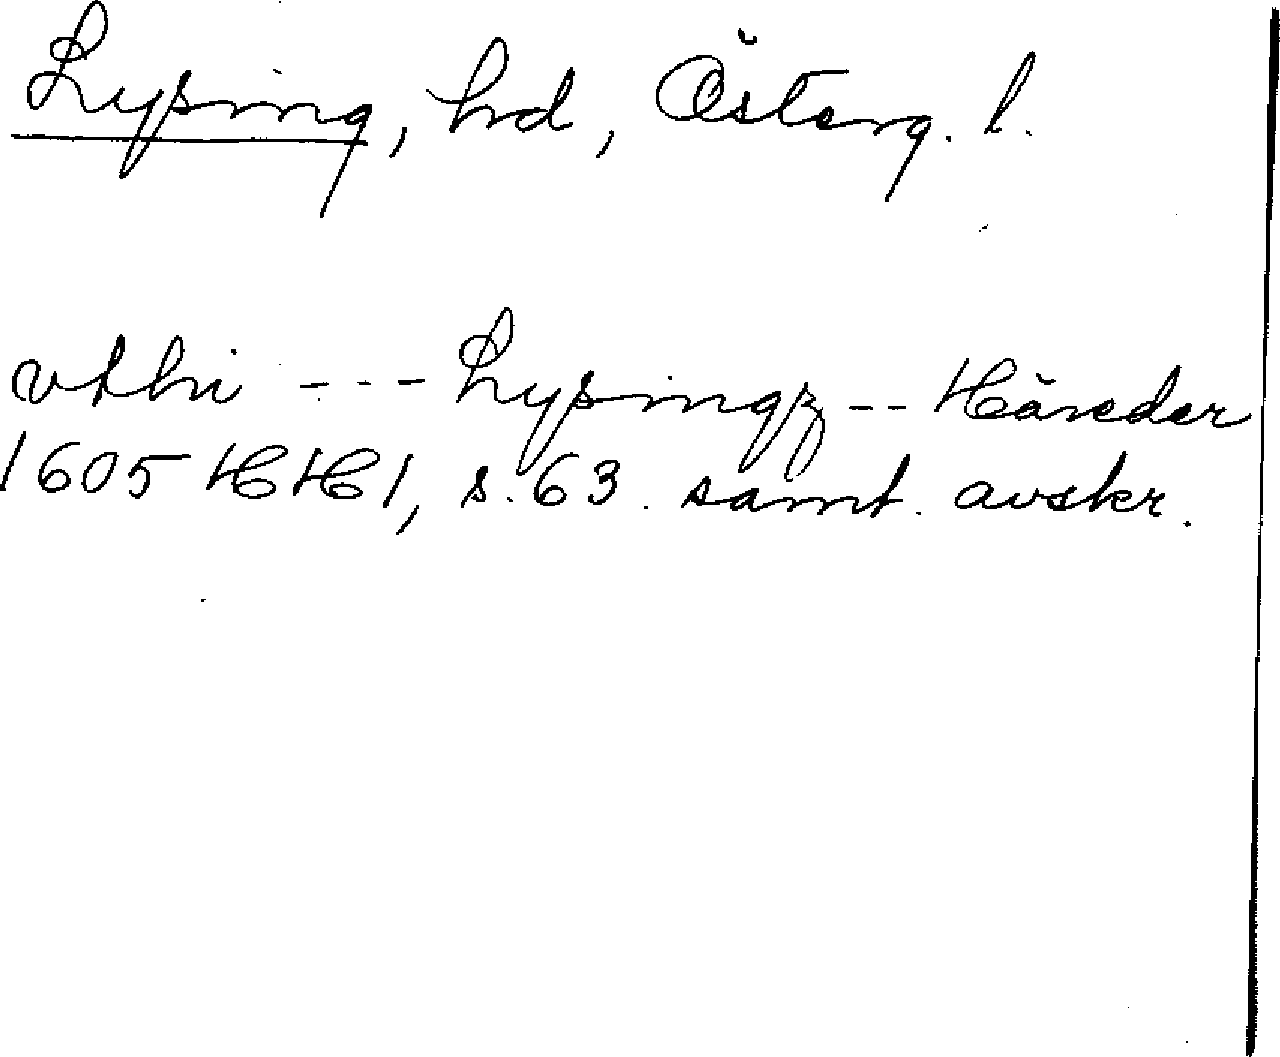 Lysing, hd, Österg. l.
vthi --- Lysingz -- Häreder
1605 HH 1, s. 63. samt. avskr.